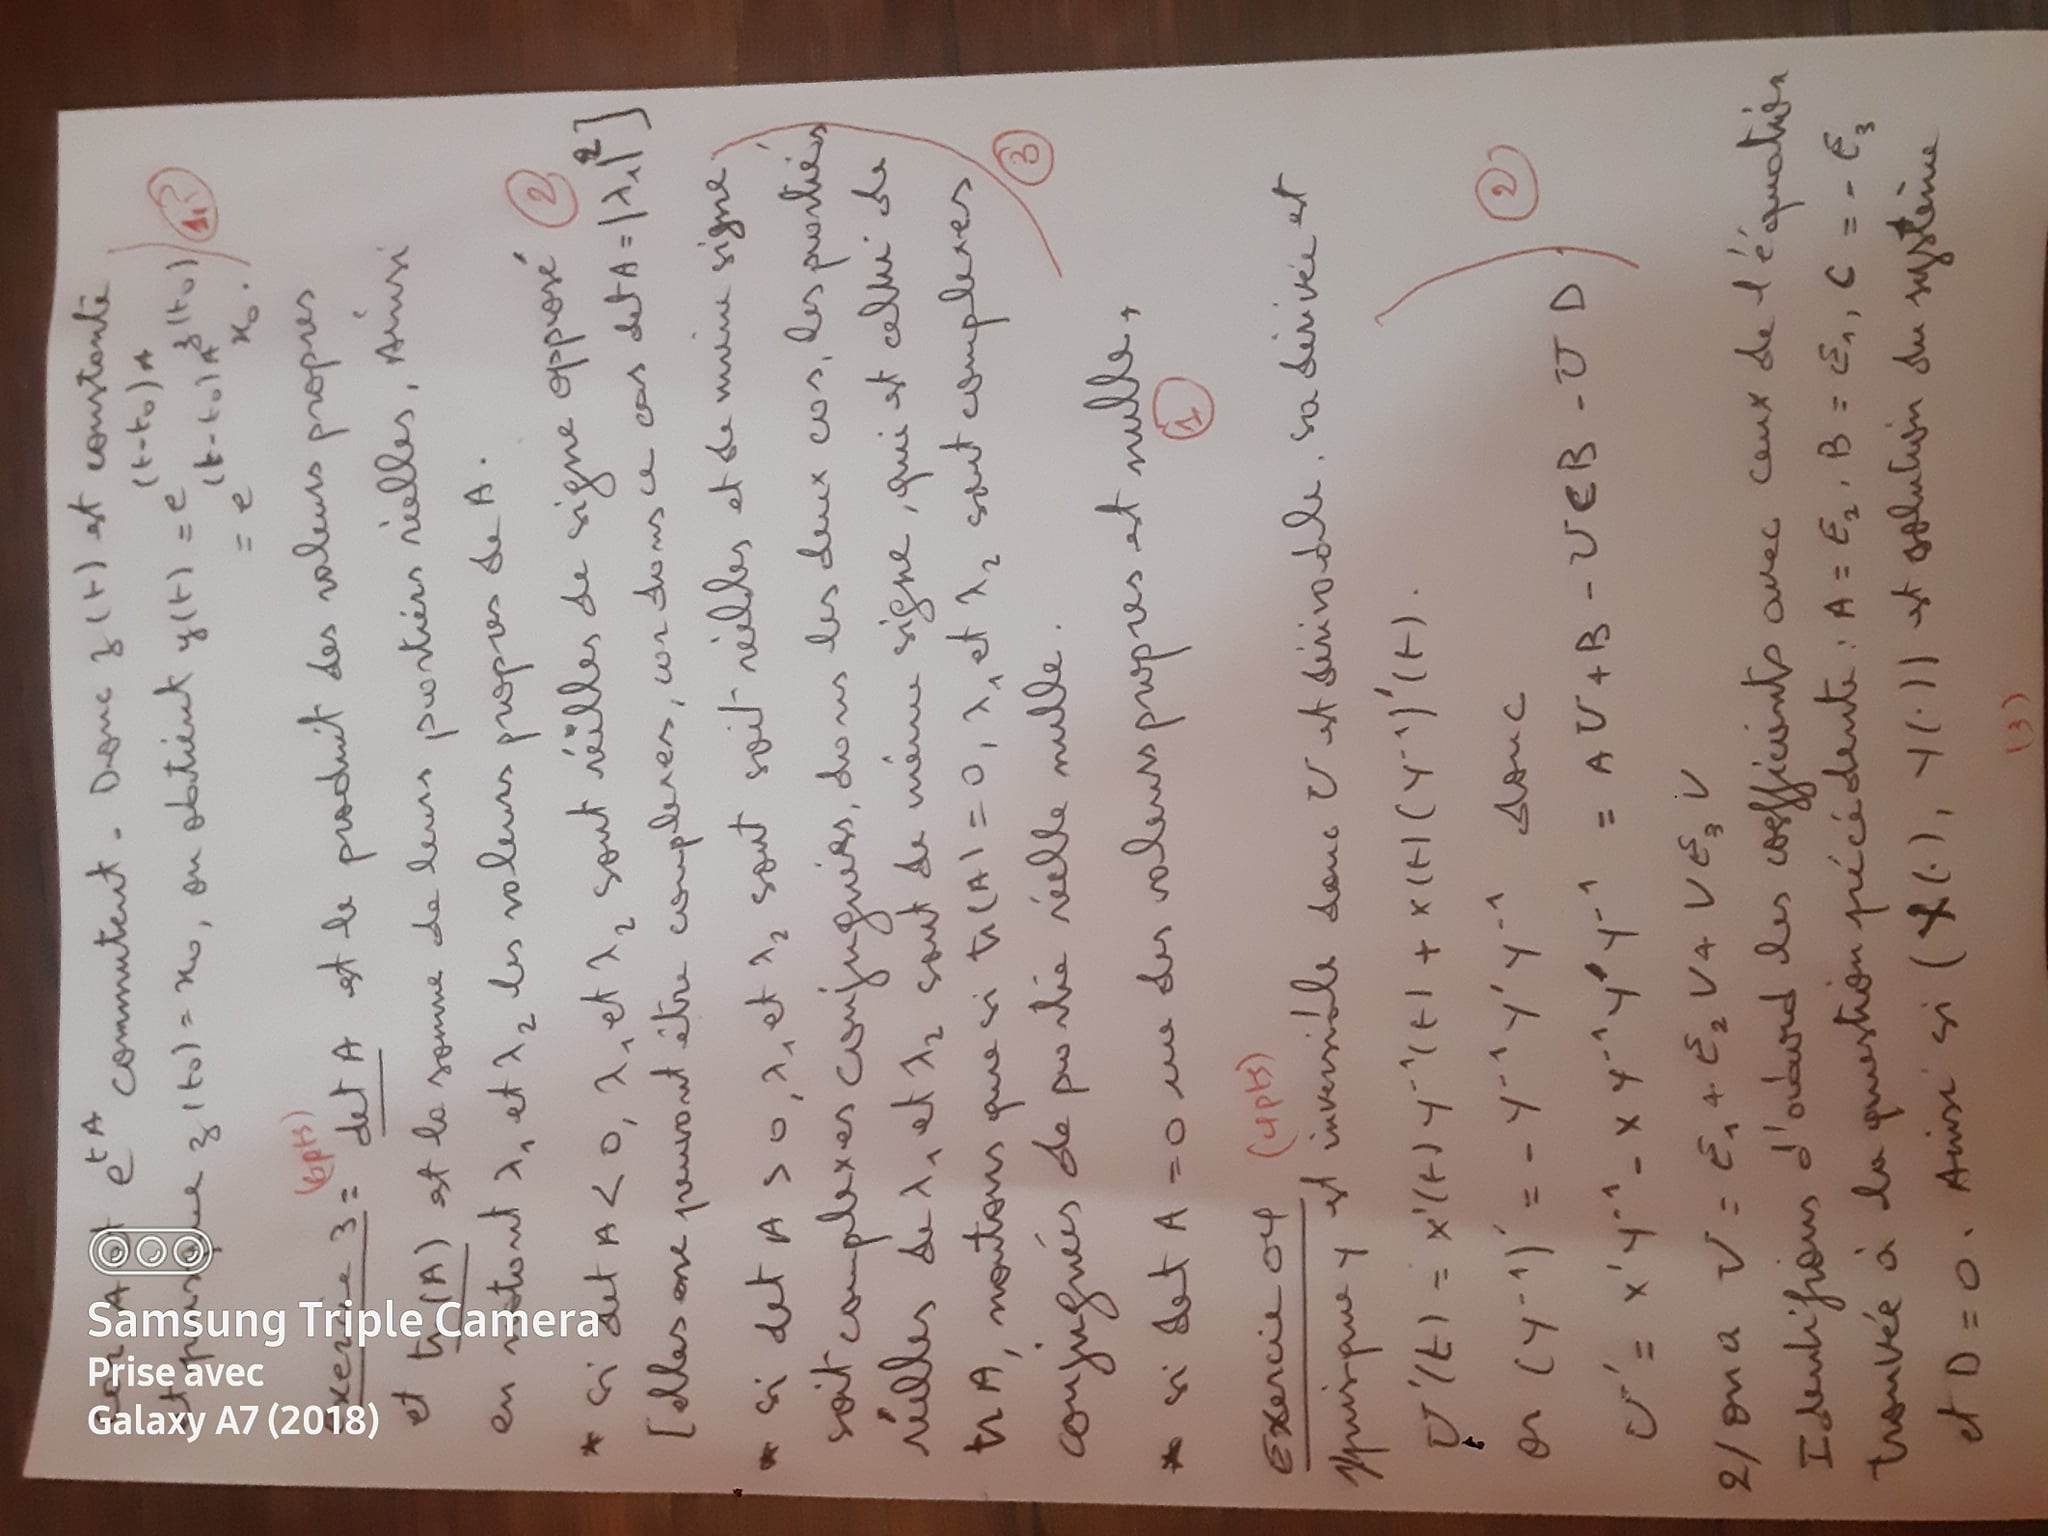 car A et e^{tA} commutent. Donc z(t) est constante
et puisque z(t₀) = x₀, on obtient y(t) = e^{(t-t₀)A} z(t₀)
= e^{(t-t₀)A} x₀.
1
(6pts)
Exercice 3 = det A est le produit des valeurs propres
et tr(A) est la somme de leurs partiés réelles, Ainsi
en notant λ₁ et λ₂ les valeurs propres de A.
* si det A < 0, λ₁ et λ₂ sont réelles de signe opposé
2
[elles ne peuvent être complexes, car dans ce cas det A = |λ₁|²]
* si det A > 0, λ₁ et λ₂ sont soit réelles et de même signe
soit complexes conjuguées, dans les deux cas, les partiés
réelles de λ₁ et λ₂ sont de même signe, qui est celui de
tr A, notons que si tr(A) = 0, λ₁ et λ₂ sont complexes
3
conjuguées de partie réelle nulle.
* si det A = 0 une des valeurs propres est nulle,
1
Exercie 04 (4pts)
1/puisque Y est inversible donc U est dérivable, sa dérivée est
U'(t) = X'(t) Y⁻¹(t) + X(t)(Y⁻¹)'(t).
or (Y⁻¹)' = - Y⁻¹ Y' Y⁻¹ donc
2
U' = X'Y⁻¹ - X Y⁻¹ Y' Y⁻¹ = A U + B - U C B - U D
2/ on a U = E₁ + E₂ U + U E₃ U
Identifions d'abord les coefficients avec ceux de l'équation
trouvée à la question précédente : A = E₂, B = E₁, C = - E₃
et D = 0. Ainsi si (X(.), Y(.)) est solution du système
(3)
Samsung Triple Camera
Prise avec
Galaxy A7 (2018)